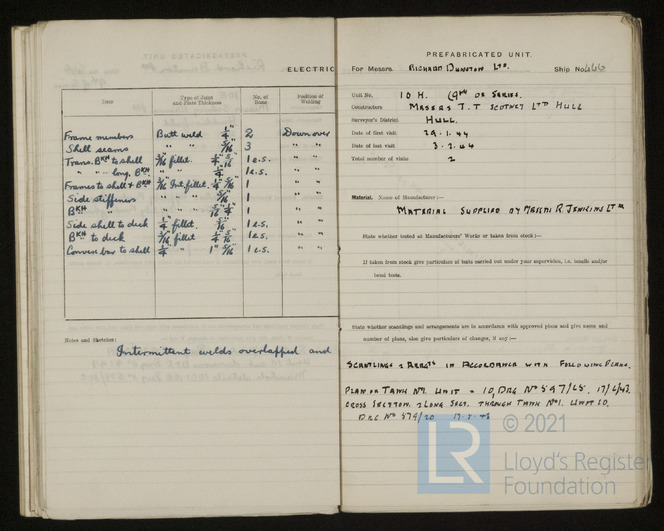 ELECTRIC
Item
Type of Joint and Plate Thickness
No. of Runs
Position of Welding
Frame members Butt weld 1/4" 2 Down over
Shell seams " " 5/16" 3 " "
Trans. BKH to shell 3/16 fillet. 1/4" 5/16" 1 e.s. " "
" " long. BKH " " 1/4" 1 e.s. " "
Frames to shell & BKH 3/16 Int. fillet. 1/4" 5/16" 1 " "
Side stiffeners " " " 5/16" 1 " "
BKH " " " " 5/16" 1/4" 1 " "
Side shell to deck 1/4 fillet. 5/16" 1 e.s. " "
BKH to deck 3/16 fillet 1/4" 5/16" 1 e.s. " "
Convex bar to shell 1/4 " 1" 5/16" 1 e.s. " "
Notes and Sketches:
Intermittent welds overlapped and
PREFABRICATED UNIT.
For Messrs. RICHARD DUNSTON LTD. Ship No. 466
Unit No. 10 H. (9TH OF SERIES.
Constructors MESSRS T. T SCOTNEY LTD HULL
Surveyor's District HULL.
Date of first visit 29.1.44
Date of last visit 3.2.44
Total number of visits 2
Material. Name of Manufacturer:—
MATERIAL SUPPLIED BY MESSRS R JENKINS LTD
State whether tested at Manufacturers' Works or taken from stock:—
If taken from stock give particulars of tests carried out under your supervision, i.e. tensile and/or
bend tests.
State whether scantlings and arrangements are in accordance with approved plans and give name and
number of plans, also give particulars of changes, if any:—
SCANTLINGS & ARRGTS IN ACCORDANCE WITH FOLLOWING PLANS.
PLAN OF TANK No1. UNIT - 10, DRG No 597/65. 17/6/43.
CROSS SECTION & LONG SECT. THROUGH TANK No1. UNIT 10.
DRG No 574/20
LR
© 2021
Lloyd's Register
Foundation